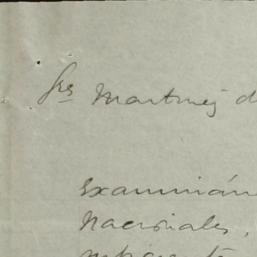 Sres Martinez d
Examinan
Nacionales,